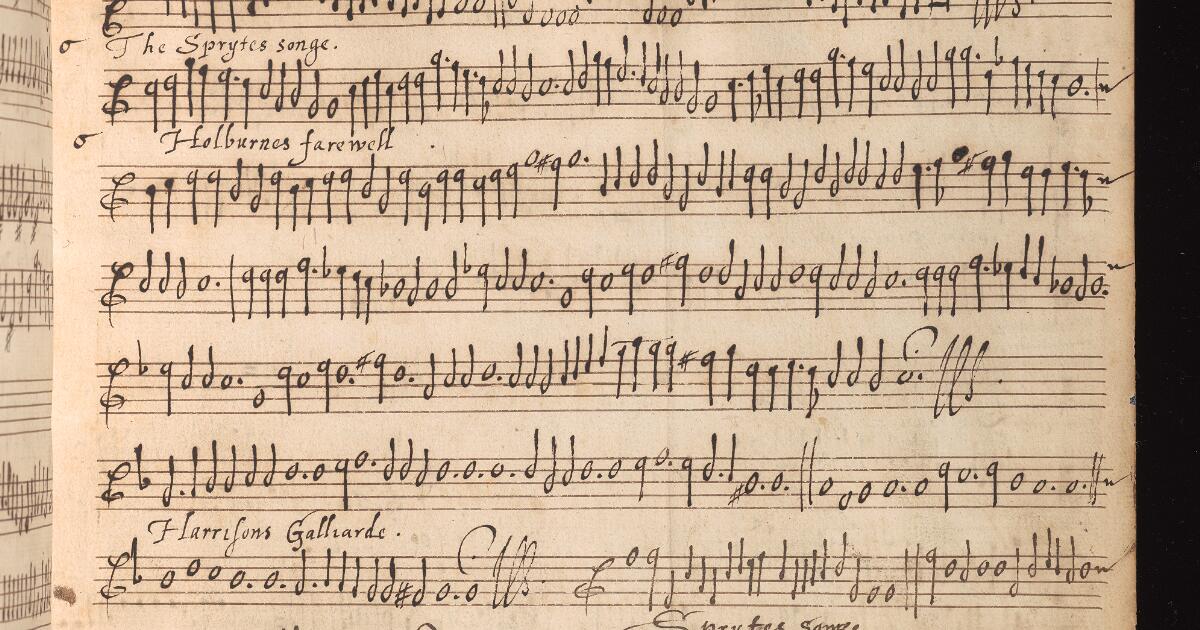 The Sprytes songe.
Holburnes farewell
Harrisons Galliarde.
Sprytes songe